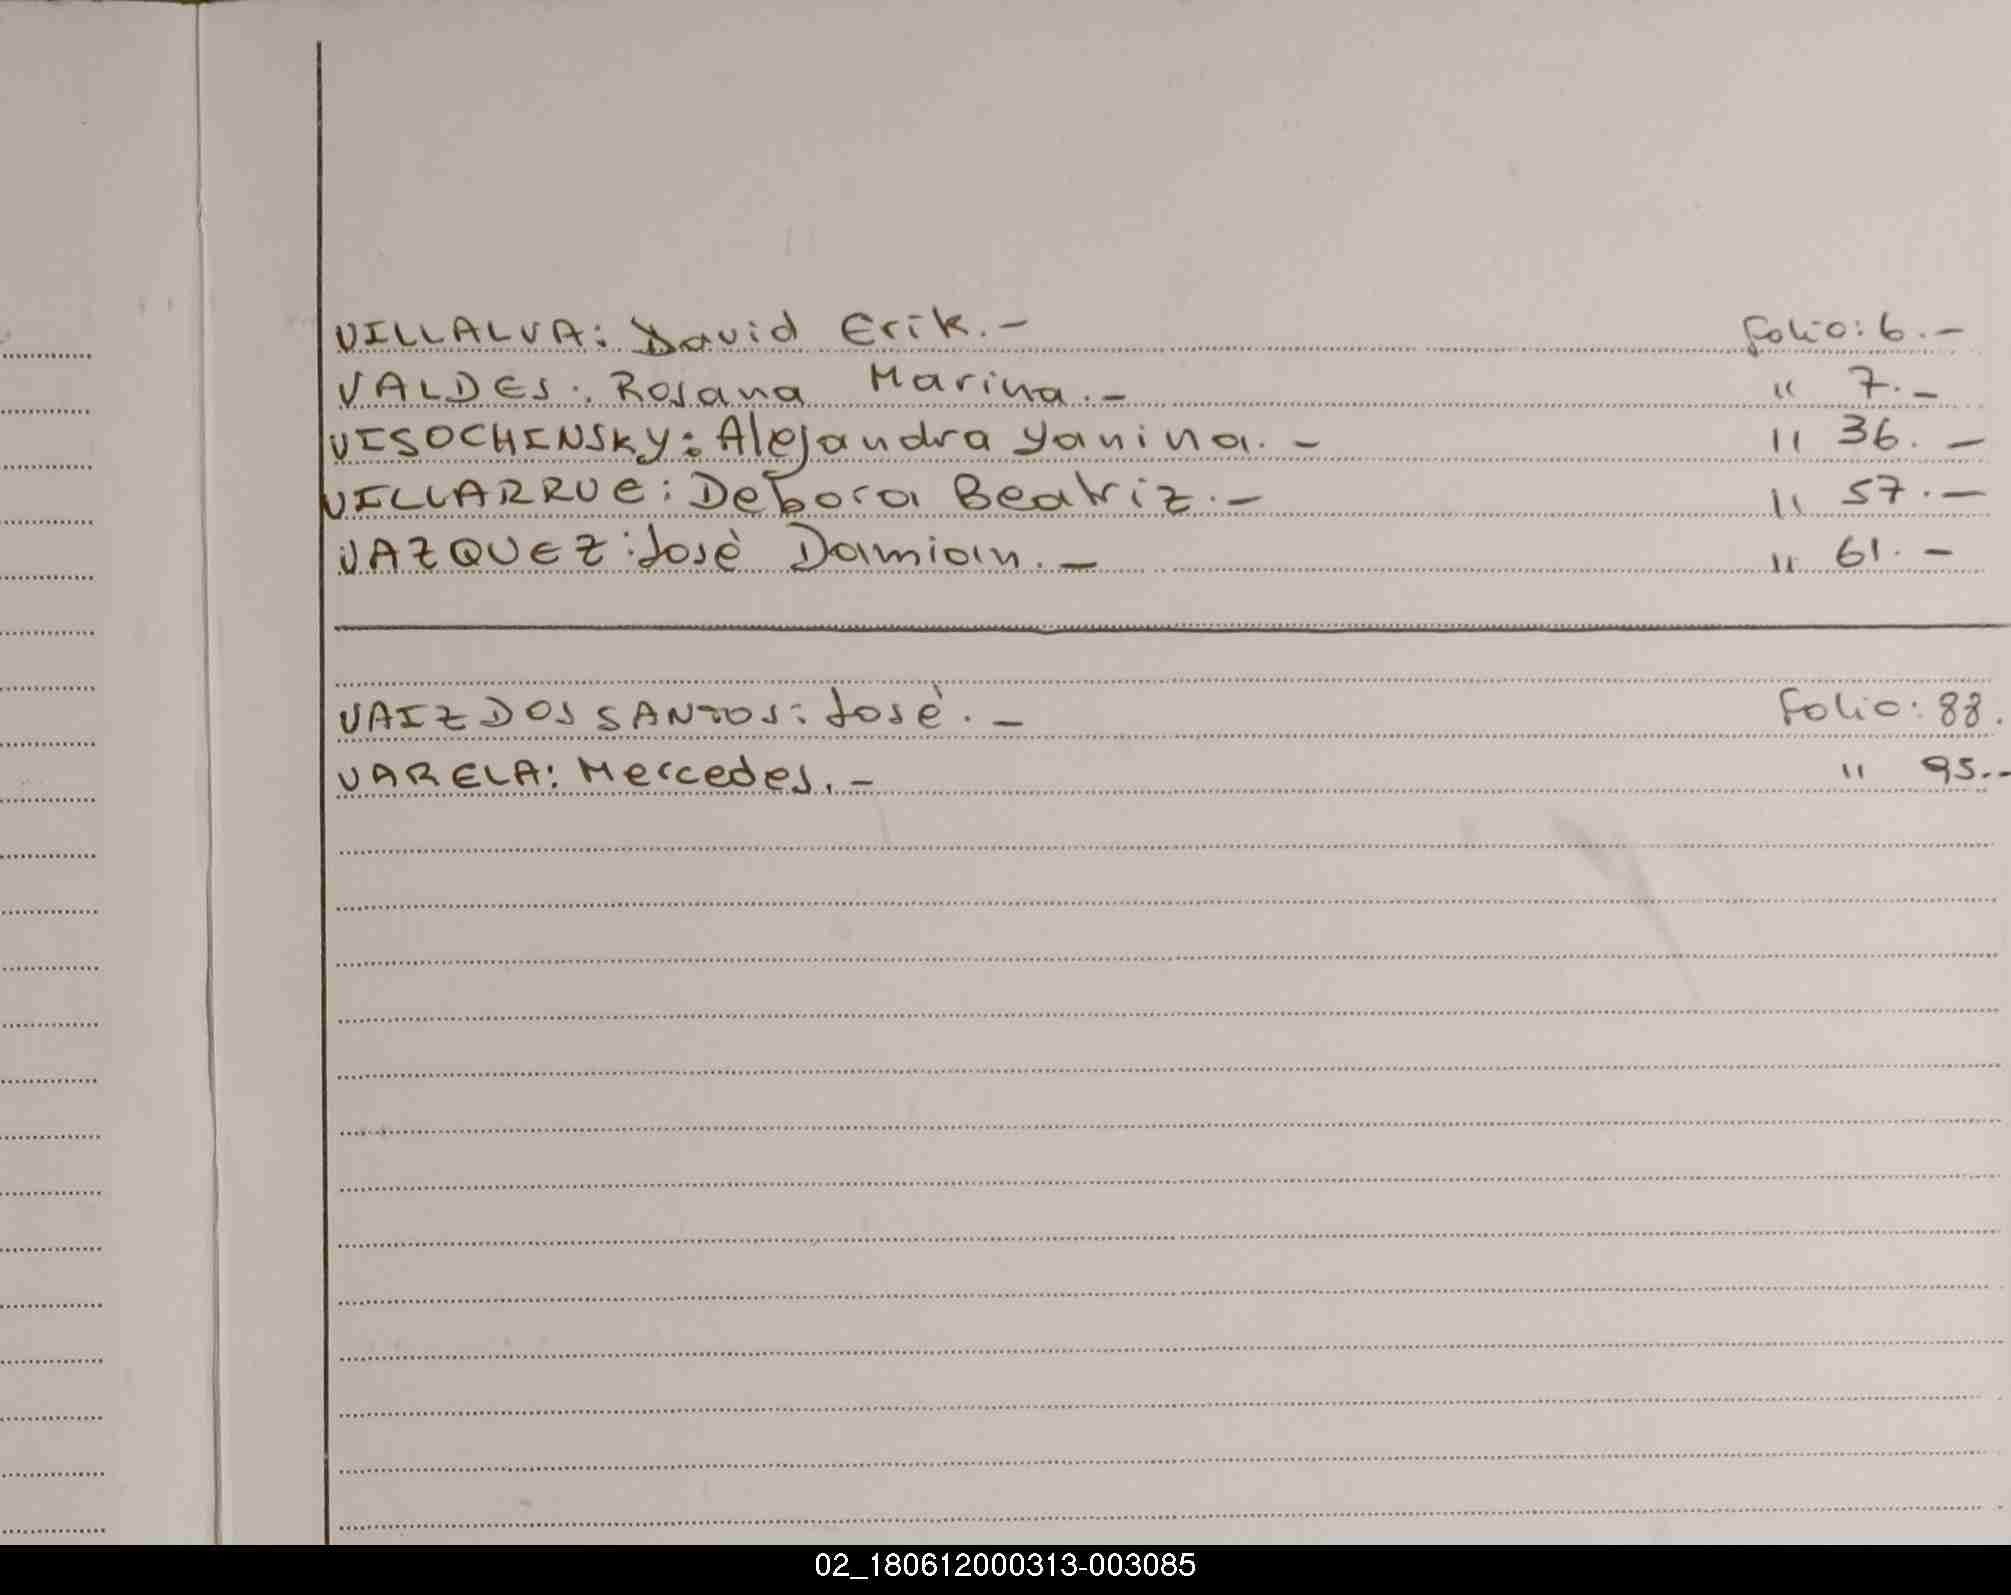 VILLALVA: David Erik.- Folio: 6.-
VALDES: Rosana Marina.- " 7.-
VISOCHINSKY: Alejandra Yanina.- " 36.-
VILLARRUE: Debora Beatriz.- " 57.-
VAZQUEZ: Josè Damian.- " 61.-
VAIZ DOS SANTOS: Josè.- Folio: 88.
VARELA: Mercedes.- " 95.-
02_180612000313-003085